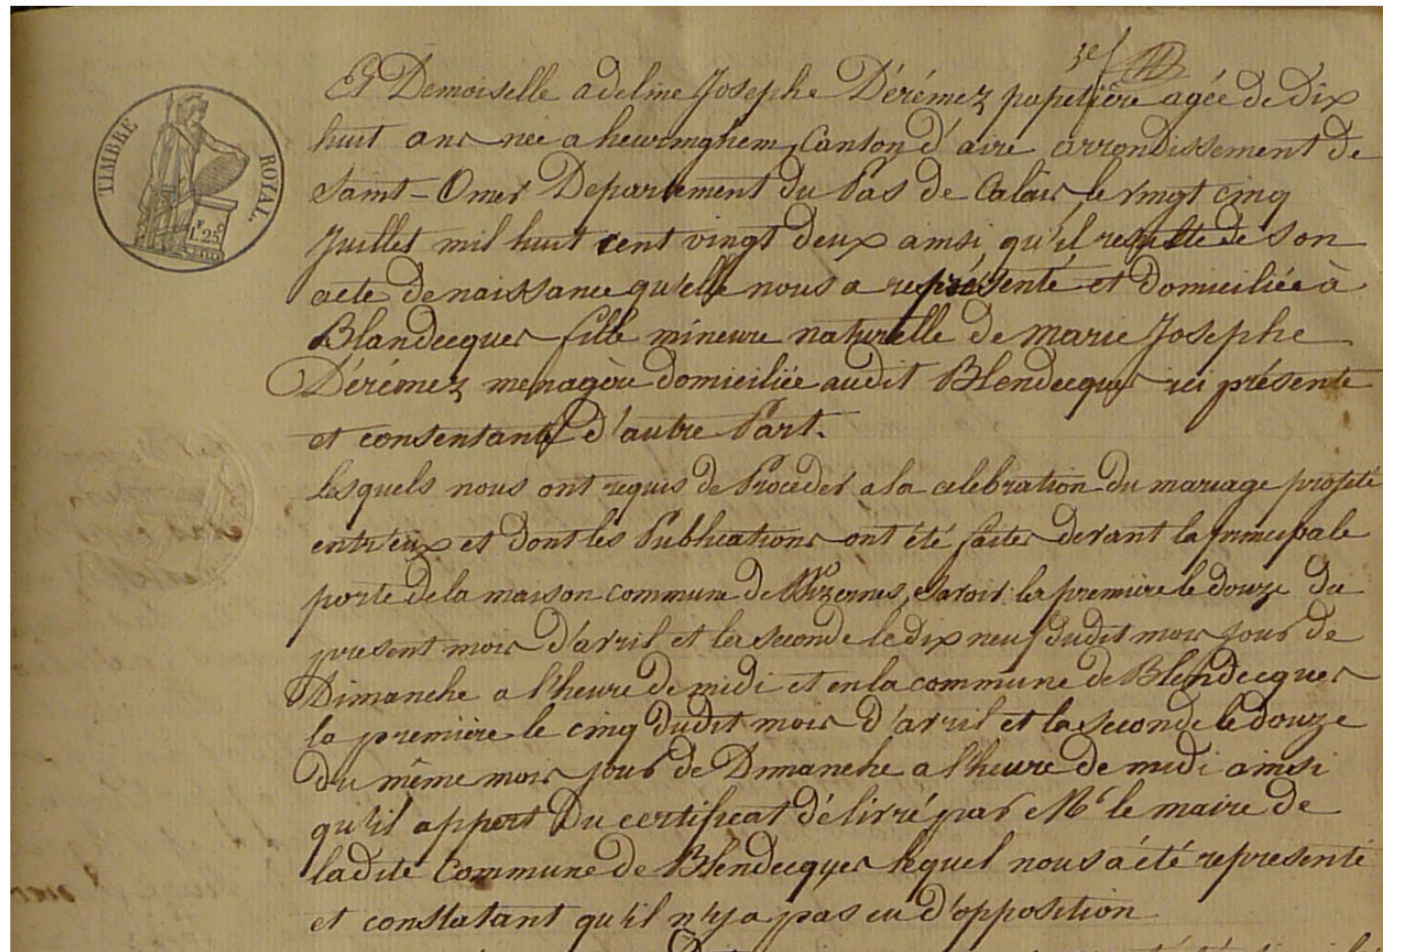 TIMBRE ROYAL.
1F 25C
3e f
Et Demoiselle adeline Josephe Dérémez papetière agée de Dix
huit ans née a heuringhem, Canton d'aire arrondissement de
Saint-Omer Departement du Pas de Calais le vingt cinq
Juillet mil huit cent vingt deux ainsi qu'il resulte de son
acte de naissance qu'elle nous a représenté et domiciliée à
Blandecques fille mineure naturelle de marie Josephe
Dérémez menagère domiciliée audit Blendecques ici présente
et consentante d'autre Part.
Lesquels nous ont requis de Procéder a la celebration du mariage projeté
entr'eux et dont les Publications ont été faites devant la principale
porte de la maison commune de Wizernes, savoir: la premiere le douze du
present mois d'avril et la seconde le dix neuf dudit mois jour de
Dimanche a l'heure de midi et en la commune de Blendecques
la premiere le cinq dudit mois d'avril et la seconde le douze
du même mois jour de Dimanche a l'heure de midi ainsi
qu'il appert Du certificat délivré par Mr le maire de
ladite Commune de Blendecques lequel nous a été representé
et constatant qu'il n'y a pas eu d'opposition